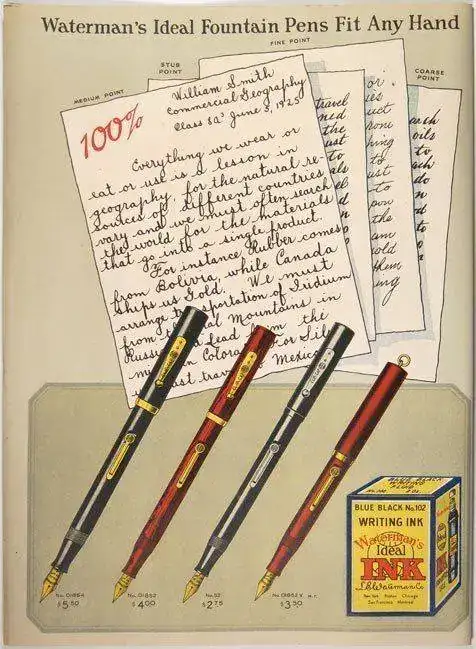 Waterman's Ideal Fountain Pens Fit Any Hand
FINE POINT
STUB
POINT
MEDIUM POINT
COARSE
POINT
100%
William Smith
Commercial Geography
June 3, 1925
Everything we wear or
eat or use is a lesson in
geography, for the natural re-
sources of different countries
vary and we must often search
the world for the materials
that go into a single product.
For instance Rubber comes
from Bolivia while Canada
ships us Gold. We must
arrange transportation of Iridium
from Mountains in
lead in the
in Colora or Sil
Mexic
travel
the
or
uct
to
the
hing
to
them
oils
to
BLUE BLACK
WRITING
FLUID
BLUE BLACK No. 102
WRITING INK
Waterman's
Ideal
INK
L.E. Waterman Co.
New York Boston Chicago
San Francisco Montreal
No. 01854
$5.50
No. 01852
$4.00
No. 52
$2.75
No. 01852 V
$3.50